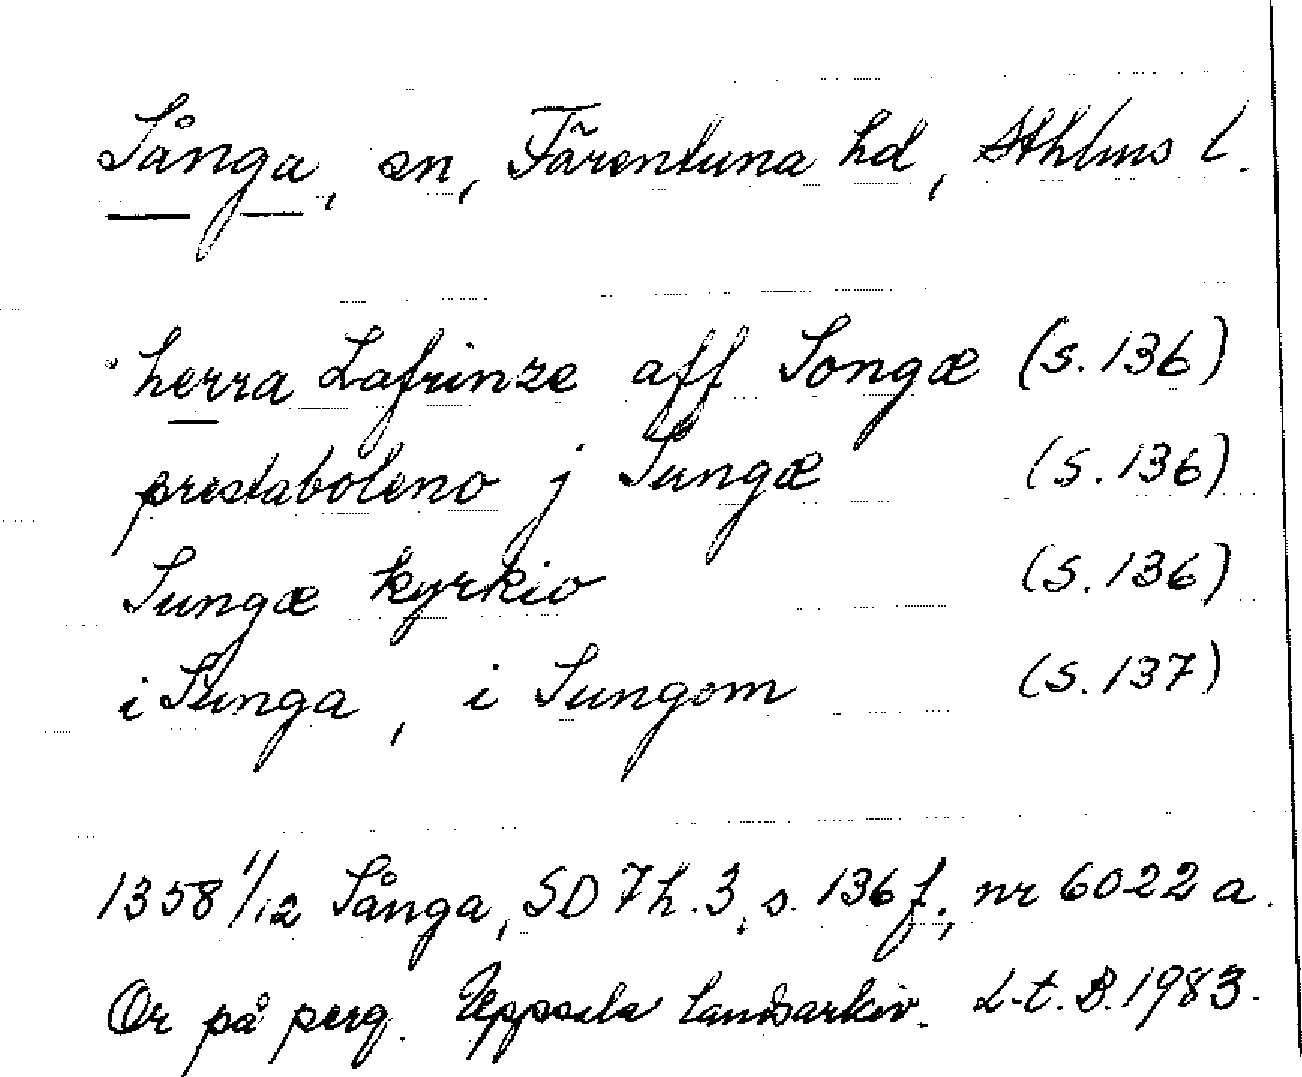 Sånga, sn, Färentuna hd, Sthlms l.
herra Lafrinze aff Songæ (s. 136)
prestaboleno j Sungæ (s. 136)
Sungæ kyrkio (s. 136)
i Sunga, i Sungom (s. 137)
1358 1/12 Sånga, SD 7 h. 3, s. 136 f., nr 6022 a.
Or på perg. Uppsala landsarkiv. L-t. B. 1983.